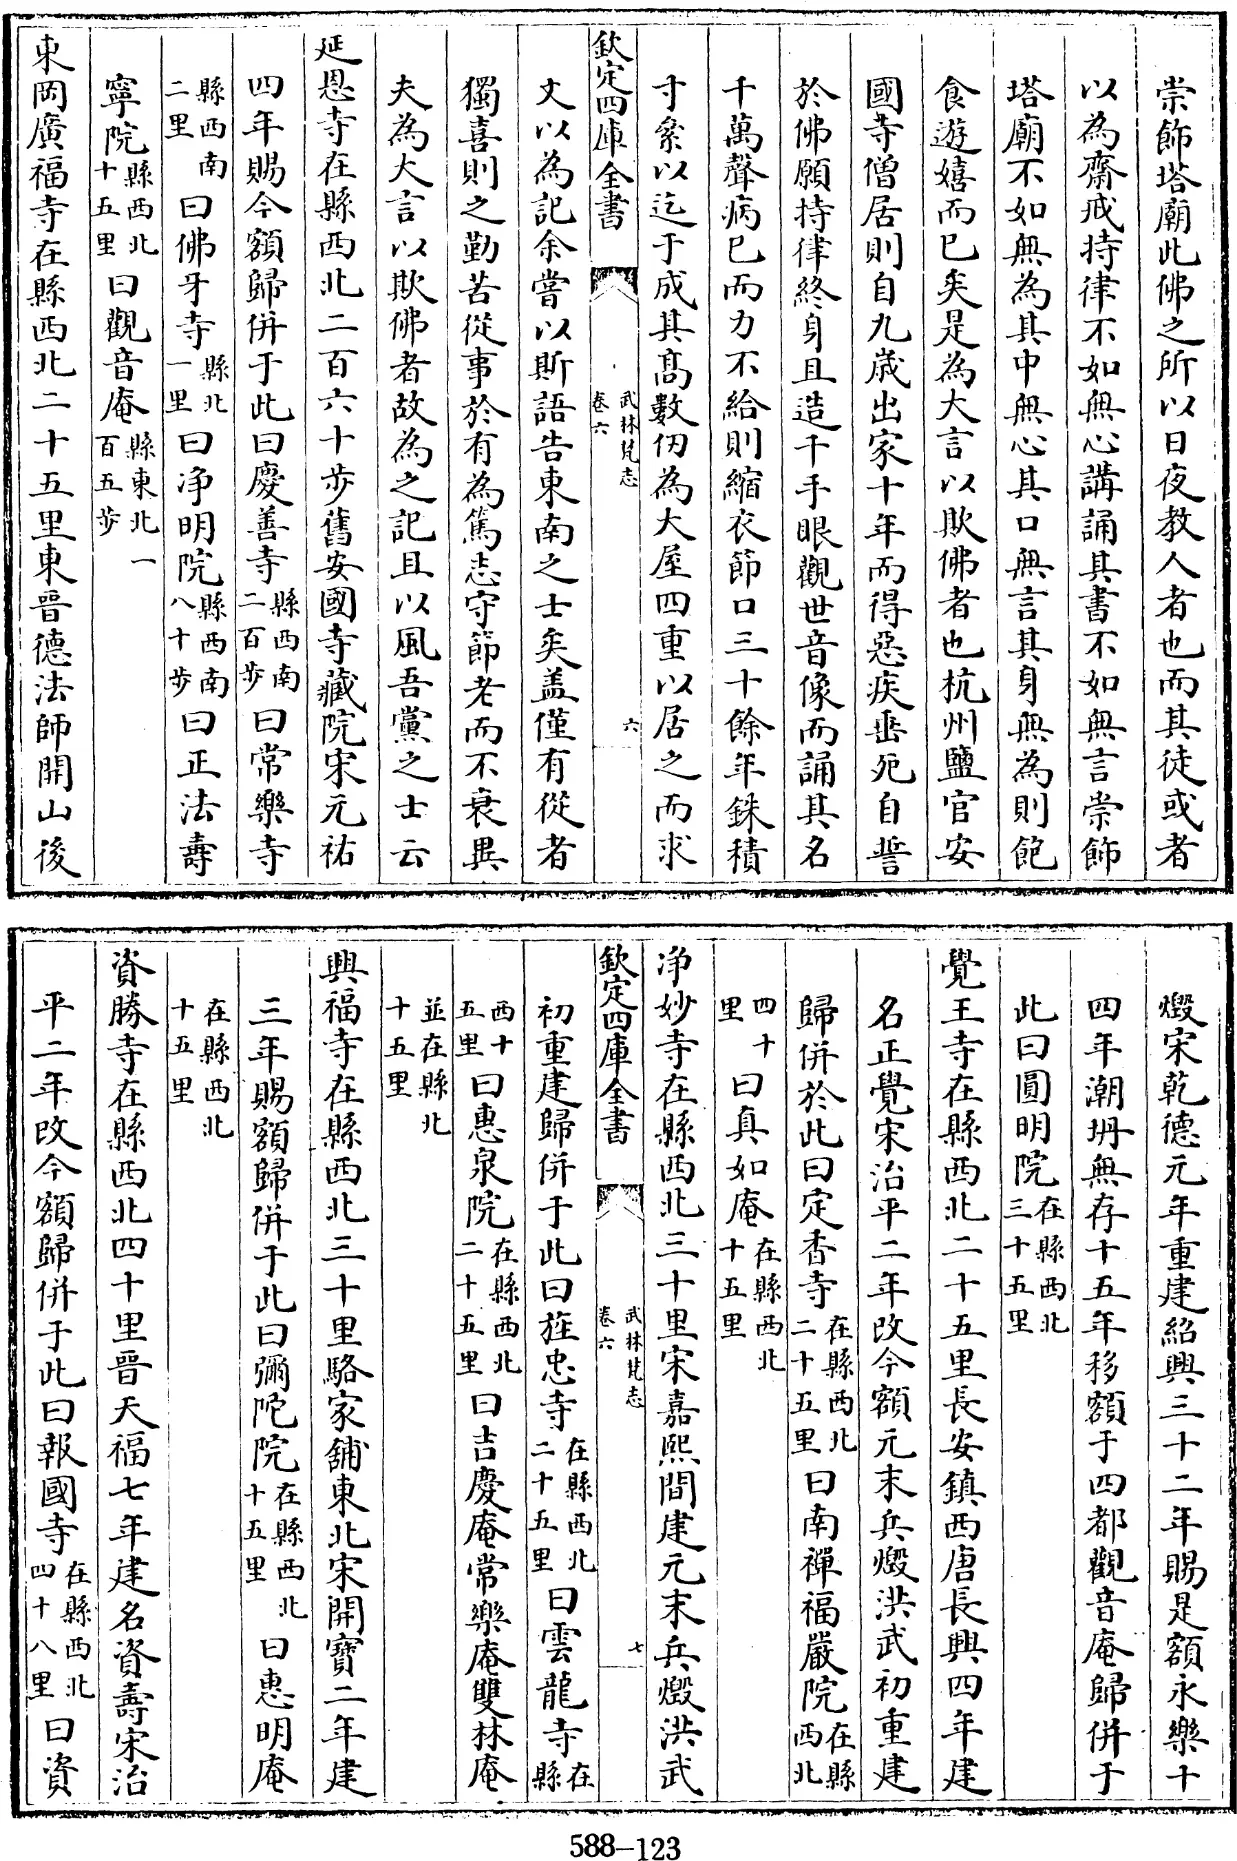 崇飾塔廟此佛之所以日夜教人者也而其徒或者
以為齋戒持律不如無心講誦其書不如無言崇飾
塔廟不如無為其中無心其口無言其身無為則飽
食遊嬉而已矣是為大言以欺佛者也杭州鹽官安
國寺僧居則自九歲出家十年而得惡疾垂死自誓
於佛願持律終身且造千手眼觀世音像而誦其名
千萬聲病已而力不給則縮衣節口三十餘年銖積
寸絫以迄于成其髙數仞為大屋四重以居之而求
欽定四庫全書
武林梵志
卷六
六
文以為記余嘗以斯語告東南之士矣盖僅有從者
獨喜則之勤苦從事於有為篤志守節老而不衰異
夫為大言以欺佛者故為之記且以風吾黨之士云
延恩寺在縣西北二百六十步舊安國寺藏院宋元祐
四年賜今額歸併于此曰慶善寺縣西南二百步曰常樂寺
縣西南二里曰佛牙寺縣北一里曰浄明院縣西南八十步曰正法壽
寧院縣西北十五里曰觀音庵縣東北一百五步
東岡廣福寺在縣西北二十五里東晉德法師開山後
燬宋乾德元年重建紹興三十二年賜是額永樂十
四年潮坍無存十五年移額于四都觀音庵歸併于
此曰圓明院在縣西北三十五里
覺王寺在縣西北二十五里長安鎮西唐長興四年建
名正覺宋治平二年改今額元末兵燬洪武初重建
歸併於此曰定香寺在縣西北二十五里曰南禪福嚴院在縣西北
四十里曰真如庵在縣西北十五里
浄妙寺在縣西北三十里宋嘉熙間建元末兵燬洪武
欽定四庫全書
武林梵志
卷六
七
初重建歸併于此曰旌忠寺在縣西北二十五里曰雲龍寺在縣
西十五里曰惠泉院在縣西北二十五里曰吉慶庵常樂庵雙林庵
並在縣北十五里
興福寺在縣西北三十里駱家舖東北宋開寳二年建
三年賜額歸併于此曰彌陀院在縣西北十五里曰惠明庵
在縣西北十五里
資勝寺在縣西北四十里晉天福七年建名資壽宋治
平二年改今額歸併于此曰報國寺在縣西北四十八里曰資
588-123